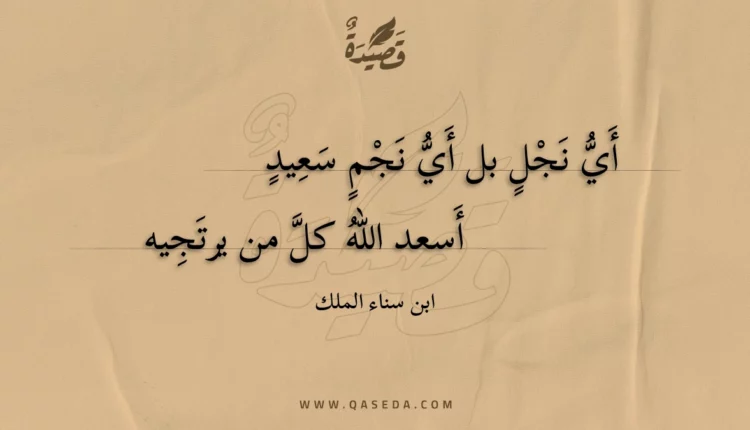 قَصِيْدَةٌ
أَيُّ نَجْلٍ بل أَيُّ نَجْمٍ سَعِيدٍ
أَسعد اللهُ كلَّ من يرتَجِيه
ابن سناء الملك
WWW.QASEDA.COM